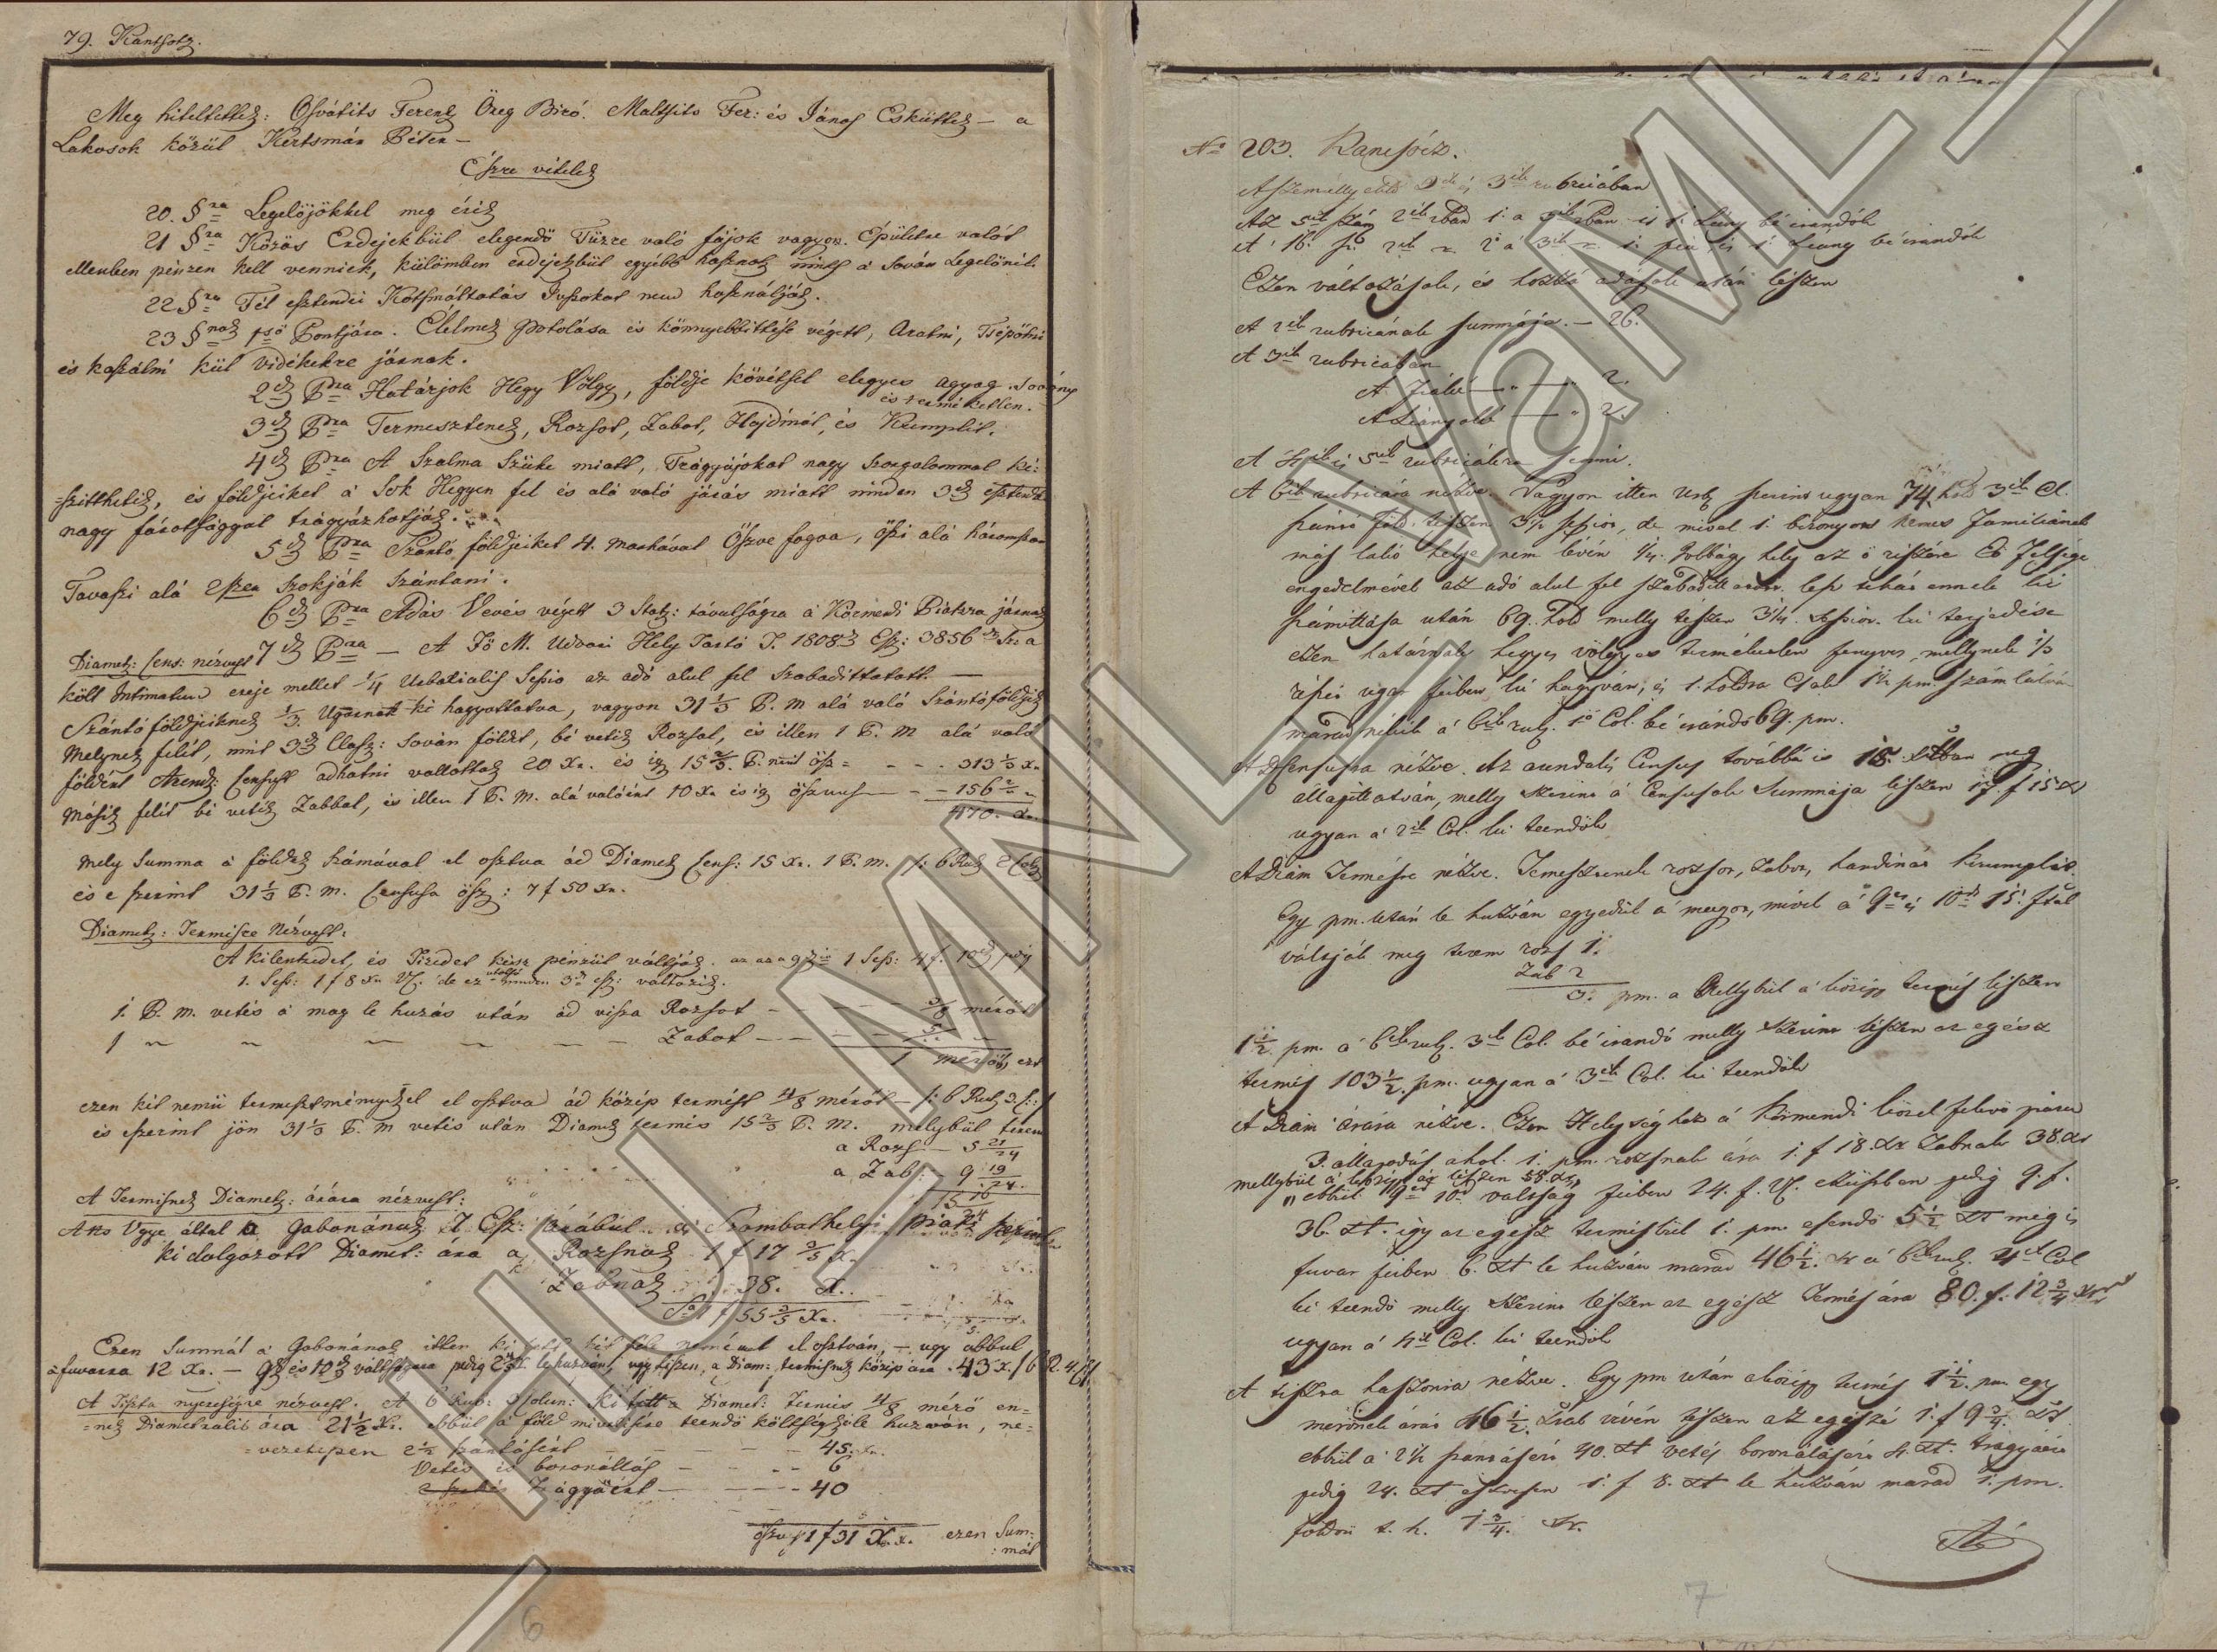 79. Kantsotz.
Meg hiteltettek: Osvátits Ferentz Öreg Biró. Maltsits Fer: és János Esküttek – a
Lakosok közül Kertsmár Péter –
Észre vételek
20. §ra Legelőjökkel meg érik
21 §ra Közös Erdejekbül elegendő Tüzre való fájok vagyon. Épületre valót
ellenben pénzen kell venniek, külömben erdejekbül egyébb hasznok nints a Sován Legelőnél.
22 §ra Fél esztendei Kotsmáltatás Jussokat nem használják.
23 §nak 1ső Pontjára. Élelmek Potolása és könnyebbittése végett, Aratni, Tsépölni
és kaszálni kül vidékekre járnak.
2dik Pra Határjok Hegy Völgy, földje kövétsel elegyes agyag. Sovány
és terméketlen.
3dik Pra Termesztenek, Rozsot, Zabot, Hajdinát, és Krumplit.
4dik Pra A Szalma Szüke miatt, Trágyájokat nagy Szorgalommal ké:
=szitthetik, és földjeiket a Sok Hegyen fel és alá való járás miatt minden 3dik esztend
nagy fárotsággal trágyázhatják.
5dik Pra Szántó földjeiket 4. marhával Öszve fogva, őszi alá háromszor
Tavaszi alá 2szer Szokják Szántani.
6dik Pra Adás Vevés végett 3 Stat: távulságra a Körmendi Piatzra járnak
Diamet: Cens: nézvest 7dik Pra – A Fő M. Udvari Hely Tartó T. 1808dik Esz: 3856 Sz: a
költ Intimatum ereje mellet 1/4 Urbarialis Sessio az adó alul fel Szabadittatott. –
Szántóföldjeiknek 1/3 Ugarnak ki hagyattatva, vagyon 31 1/3 P. M alá való Szántóföldjek
Melynek felét, mint 3dik Class: Sován földet, bé vetik Rozsal, és illen 1 P. M alá való
földért Arend: Censust adhatni vallották 20 Xr. és igy 15 2/3. P. mért ösz = - - - 313 1/3 Xr
Másik felét bé vetik Zabbal, és illen 1 P. M. alá valóért 10 Xr és igy öszves - - 156 2/3 "
470. Xr.
Mely Summa a földek Számával el osztva ád Diamet Cens: 15 Xr. 1 P. M. /: 6 Rub 2 Col
és e szerint 31 1/3 P. M. Censusa ösz: 7 f 50 Xr.
Diamet: Termésre Nézvest:
A kilentzedet, és Tizedet kész pénzül váltják. az az a 9dért 1 Sess: 4 f. 10ed pedig
1. Sess: 1 f 8 Xr Vl. de ez utolsó minden 3dik esz: változik.
1. P. M. vetés a mag le huzás után ád visza Rozsot - - - - 3/8 mérőt
1 " " " " " Zabot - - - 5/8 -
1 mérőt, ezt
ezen két nemü termesztménnyel el osztva ád közép termést 4/8 mérőt - /: 6 Rub 3. C: /
és eszerint jön 31 1/3 P. M vetés után Diamet termés 15 2/3 P. M. melybül terem
a Rozs - 5 21/24
a Zab: - 9 19/24.
15 16/24
A Termésnek Diamet: árára nézvest:
A Ns Vgye által a Gabonának 7 Esz: árábul a Szombathelyi piatz szerint
ki dolgozott Diamet: ára a Rozsnak 1 f 17 3/5 X.
Zabnak 38. X.
Sa 1 f 55 3/5 Xr.
Ezen Summát a Gabonának itten ki tett két féle neméuel el osztván, – ugy abbul
a fuvarra 12 Xr. – 9dik és 10dik váltságára pedig lehuzván, ugy tészen, a Diam: termésnek közép ára - 43 X. / 6 R. 4. C/
A Tiszta nyereségre nézvest. A 6 Rub: 3 Colum: ki tett a Diamet: Termés 4/8 mérő en=
=nek Diametralis ára 21 1/2 Xr. ebbül a föld mivelésre teendő költségeket le huzván, ne=
=vezetessen 2 1/2 szántásért - - - - - 45. Xr.
Vetés és boronállás - - - - 6
Trágyáért - - - - - 40
öszves 1 f 31 Xr. ezen Sum:
: mát
6
No 203. Kancsócz.
A személlyekre 2ik és 3ik rubricában
Az 5ik szám 2ik rban 1. a 3ik rban is 1. Leány bé irandók
A 16. sz. 2ik r. 2 a 3ik r. 1. fiu, és 1 Leány bé irandók
Ezen változások, és hozzá adások után lészen
A 2ik rubricának summája. – 26.
A 3ik rubricában
A Fiaké – " – " 2.
A Leányoké – " 2.
A 4ik és 5ik rubricákra semmi.
A 6ik rubricára nézve. Vagyon itten Urb szerint ugyan 74 hold 3ik Cl.
szántó föld. tészen 3 1/2 sessiot, de mivel 1. bizonyos nemes Familiának
más lakó helye nem lévén 1/4. Jobbágy hely az ő részére Eő Felsége
engedelmével az adó alul fel szabadittatott. lesz tehát ennek ki
számitása után 69. hold melly tészen 3 1/4. sessiot. ki terjedése
ezen határnak hegyes völgyes terméketlen fenyves, mellynek 1/3
részét ugar fejiben ki hagyván, és 1. holdra Csak 1 1/2 pm. számlálván
marad nékik a 6ik rub. 1ő Col. bé irandó 69. pm.
A Censusra nézve. Az arendalis Census továbbá is 15. Xrban meg
állapittatván, melly szerint a Censusok Summája lészen 17 f 15 Xr
ugyan a 2ik Col. ki teendők
A Diám Termésre nézve. Termesztenek rozsot, zabot, hardinát krumplit.
Egy pm. után le huzván egyedül a magot, mivel a 9et és 10det
váltják meg terem rozs 1.
Zab 2
3. pm. a mellybül a közép termés lészen
1 1/2. pm. a 6ik rub. 3ik Col. bé irandó melly szerint lészen az egész
termés 103 1/2. pm. ugyan a 3ik Col. ki teendők
A Diám árára nézve. Ezen Helységhez a Körmendi közel fekvő piatz
3. állapodás ahol 1. pm. rozsnak ára 1. f 18. Xr Zabnak 38. Xr
mellybül a közép ár lészen 58. Xr,
" ebbül 9ed 10d valtság fejiben 24. f. Vl. pedig 9. f.
36. Xr. igy az egész termésbül 1. pm. esendő 5 1/2 Xr még is
fuvar fejiben 6. Xr le huzván marad 46 1/2. Xr a 6ik rub. 4ik Col
ki teendő melly szerint lészen az egész Termés ára 80. f. 12 3/4 Xr
ugyan a 4ik Col. ki teendők
A tiszta haszonra nézve. Egy pm után a közép termés 1 1/2. pm. egy
mérőnek árát 46 1/2. Xrral vévén tészen az egészé 1. f 9 3/4. Xt
ebbül a 2 1/2 szántásért 40. Xt vetés boronálásért 4. Xt. trágyáért
pedig 24. Xt öszvesen 1. f 8. Xt le huzván marad 1. pm.
földön t. h. 1 3/4. Xr.
7
HU MNL VaML